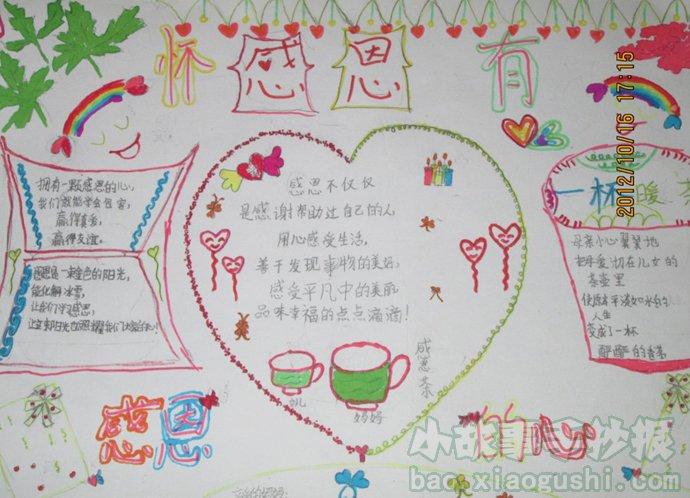 怀感恩有
2012/10/16 17:15
拥有一颗感恩的心,
我们就能学会包容,
赢得真爱,
赢得友谊。
感恩是一束金色的阳光,
能化解冰雪,
让我们学会感恩,
感恩不仅仅
是感谢帮助过自己的人
用心感受生活,
善于发现事物的美好,
感受平凡中的美丽
品味幸福的点点滴滴!
感恩茶
儿
妈妈
一杯暖
母亲小心翼翼地
把母爱切在儿女的
茶壶里
使原本平淡如水的
人生
变成了一杯
酽酽的香茗
感恩
的心
小故事手抄报
bao.xiaogushi.com